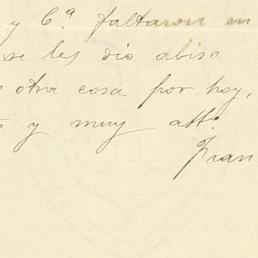 y C.ª faltaron en
se les dio abiso
otra cosa por hoy,
y muy att.
Fran